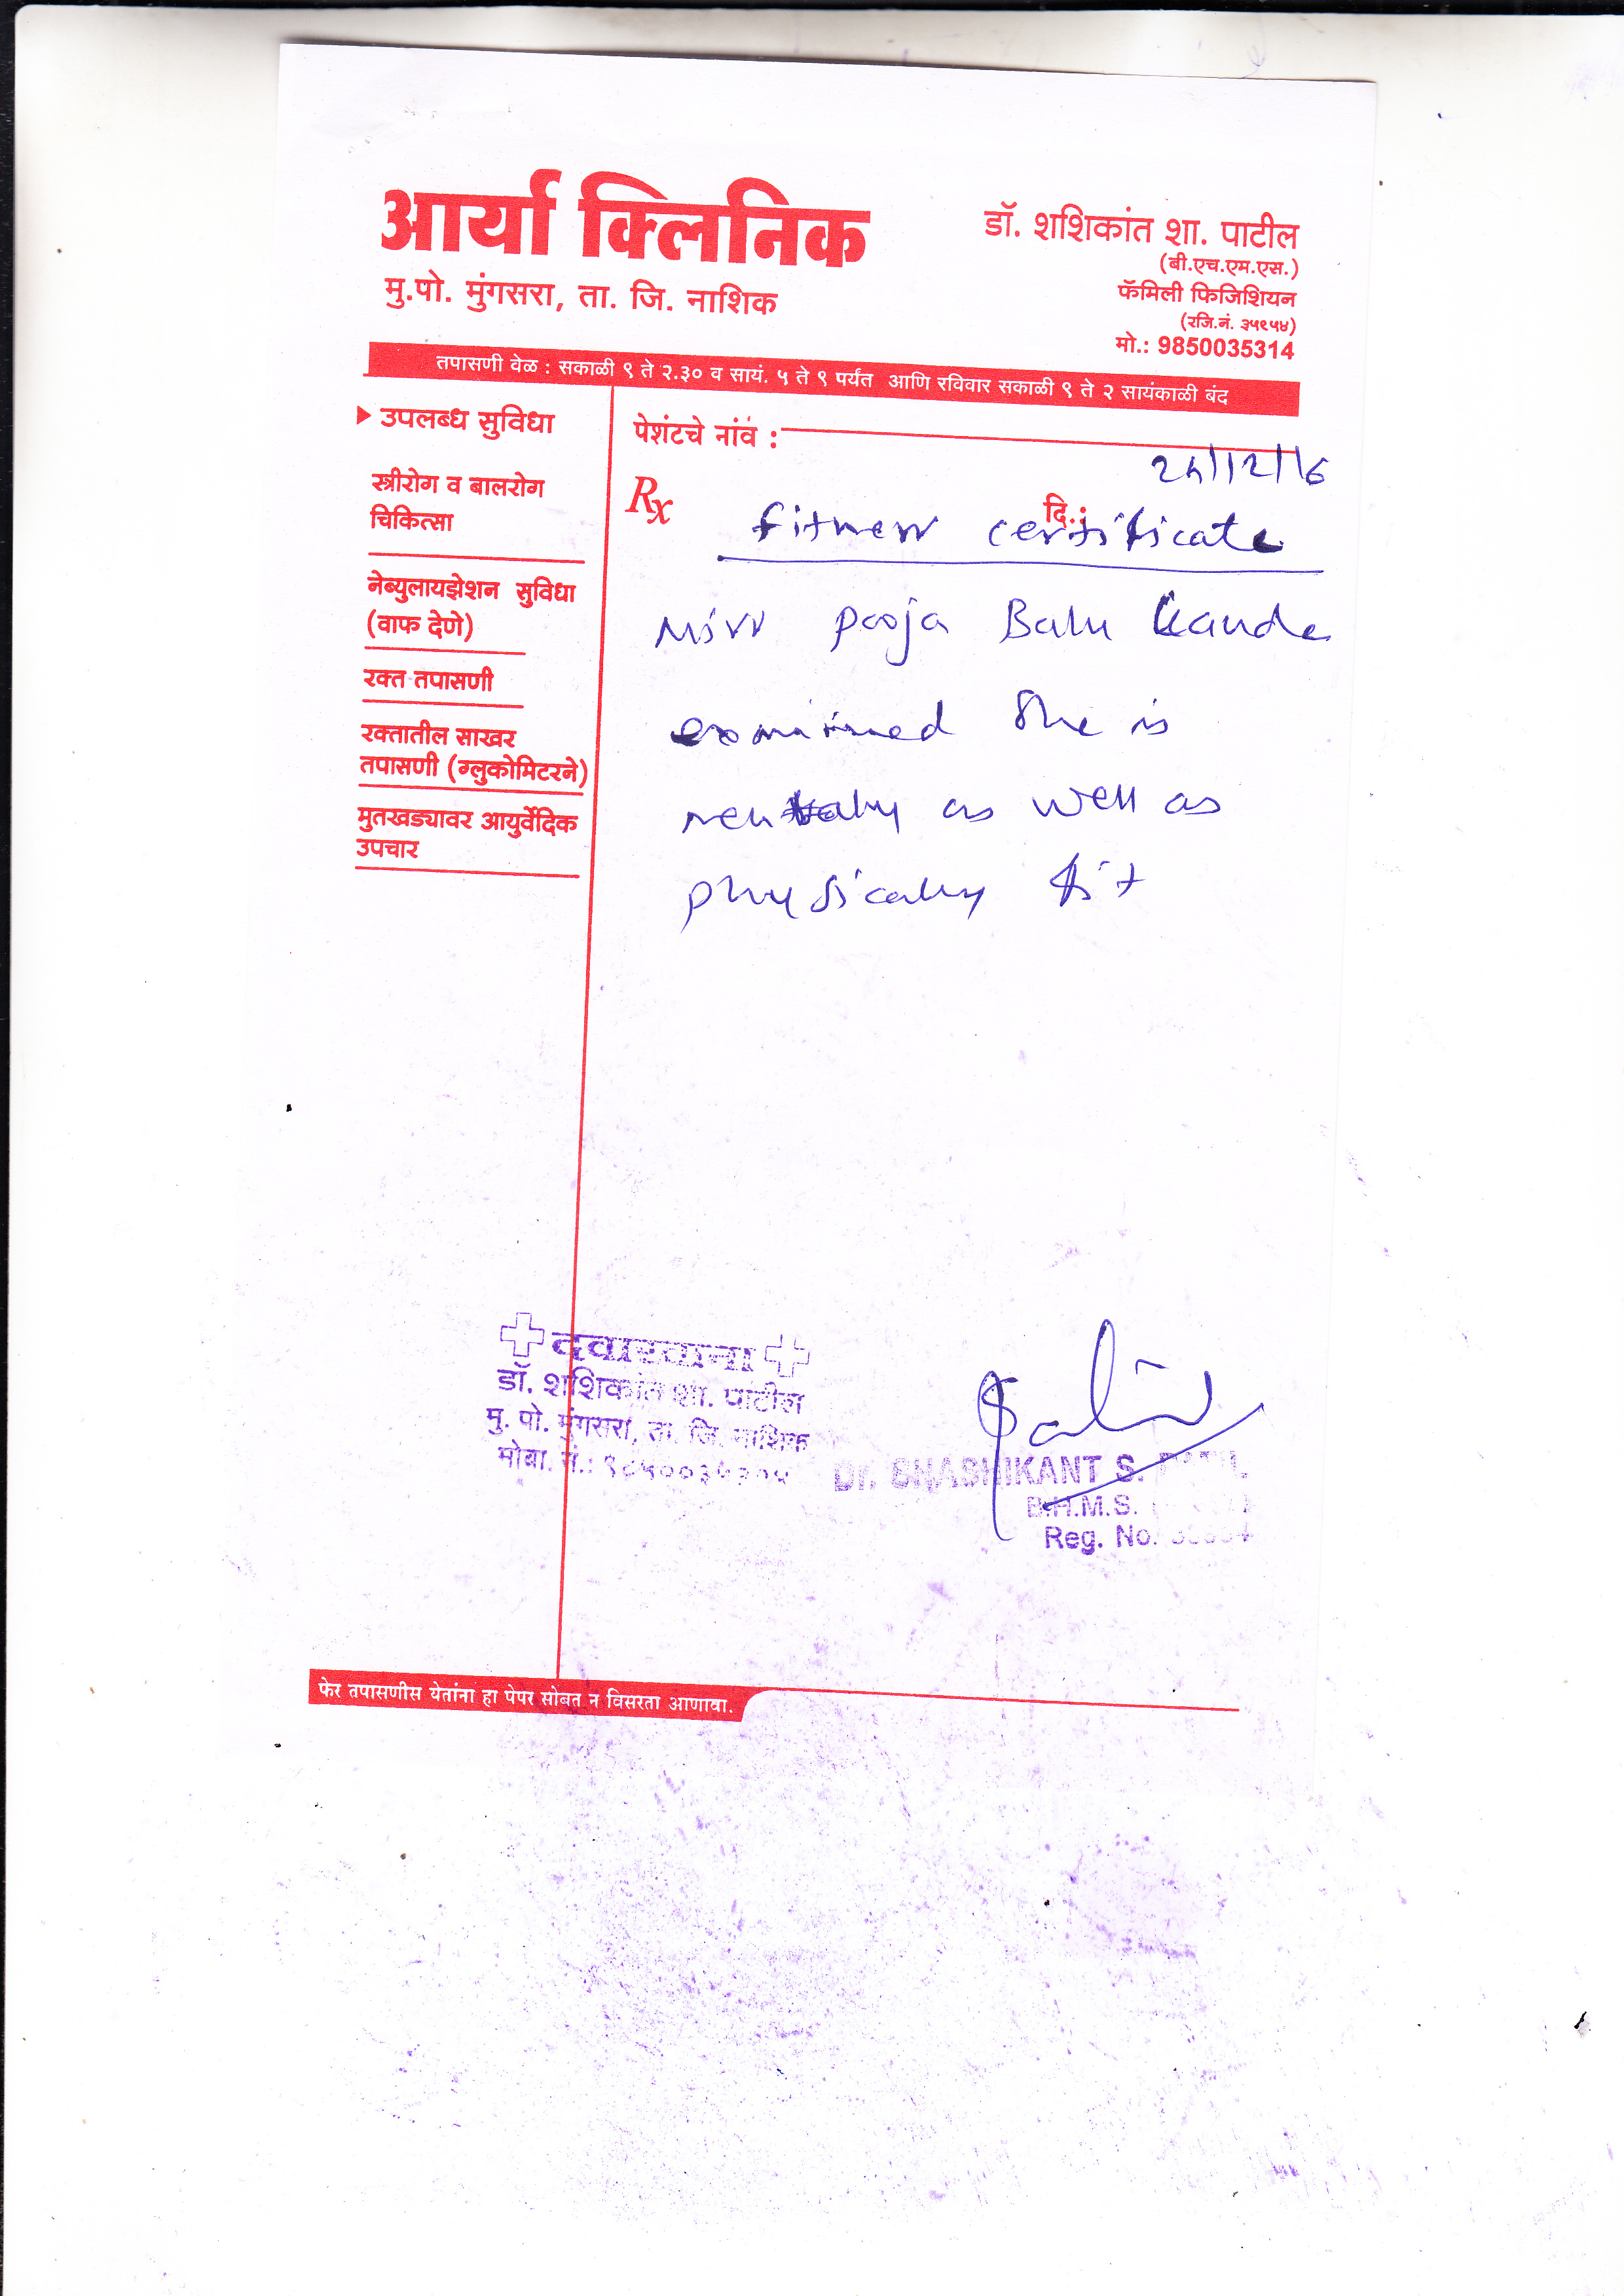 आर्या क्लिनिक
मु.पो. मुंगसरा, ता. जि. नाशिक
डॉ. शशिकांत शा. पाटील
(बी.एच.एम.एस.)
फॅमिली फिजिशियन
(रजि.नं. ३५९५४)
मो.: 9850035314
तपासणी वेळ : सकाळी ९ ते २.३० व सायं. ५ ते ९ पर्यंत आणि रविवार सकाळी ९ ते २ सायंकाळी बंद
उपलब्ध सुविधा
स्त्रीरोग व बालरोग
चिकित्सा
नेब्युलायझेशन सुविधा
(वाफ देणे)
रक्त तपासणी
रक्तातील साखर
तपासणी (ग्लुकोमिटरने)
मुतखड्यावर आयुर्वेदिक
उपचार
पेशंटचे नांव :
Rx
दि.:
fitness certificate
Miss Pooja Balu
examined She is
as well as
physically fit
दवाखाना
डॉ. शशिकांत शा. पाटील
मु. पो. मुंगसरा, ता. जि. नाशिक
मोबा. नं.:
Dr. SHASHIKANT S. PATIL
B.H.M.S.
Reg. No.
फेर तपासणीस येतांना हा पेपर सोबत न विसरता आणावा.